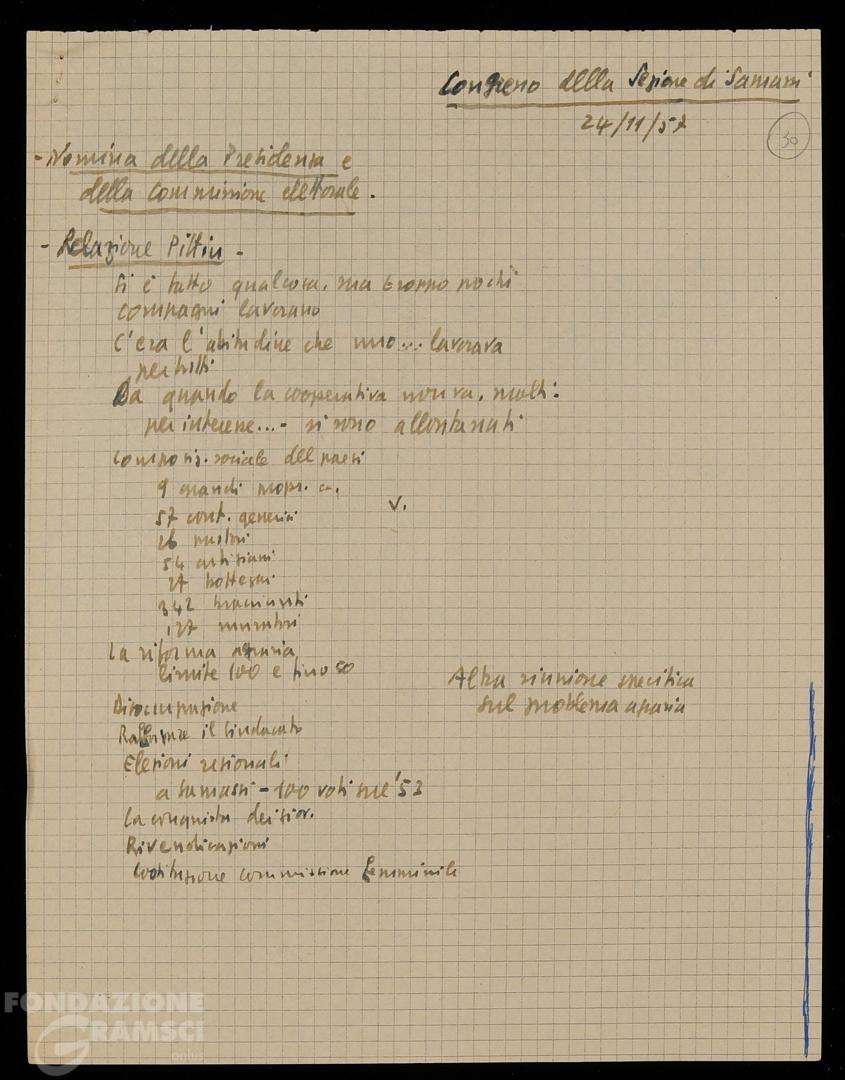 Congresso della Sezione di Samassi
24/11/57
30
- Nomina della Presidenza e
della Commissione elettorale.
- Relazione Pittiu -
Si è fatto qualcosa, ma pochi
compagni lavorano
C'era l'abitudine che uno... lavorava
per tutti
Da quando la cooperativa non va, molti:
per interesse... - si sono allontanati
Composiz. sociale del paese
9 grandi propr.
57 cont.
V.
26 pastori
54 artigiani
27 bottegai
342 braccianti
127 muratori
La riforma agraria
limite 100 e fino 50
Altra riunione specifica
sul problema agraria
Disoccupazione
Rafforzare il Sindacato
Elezioni regionali
a Samassi - 100 voti sul '53
La conquista
Rivendicazioni
Costituzione commissione femminile
FONDAZIONE
GRAMSCI
onlus